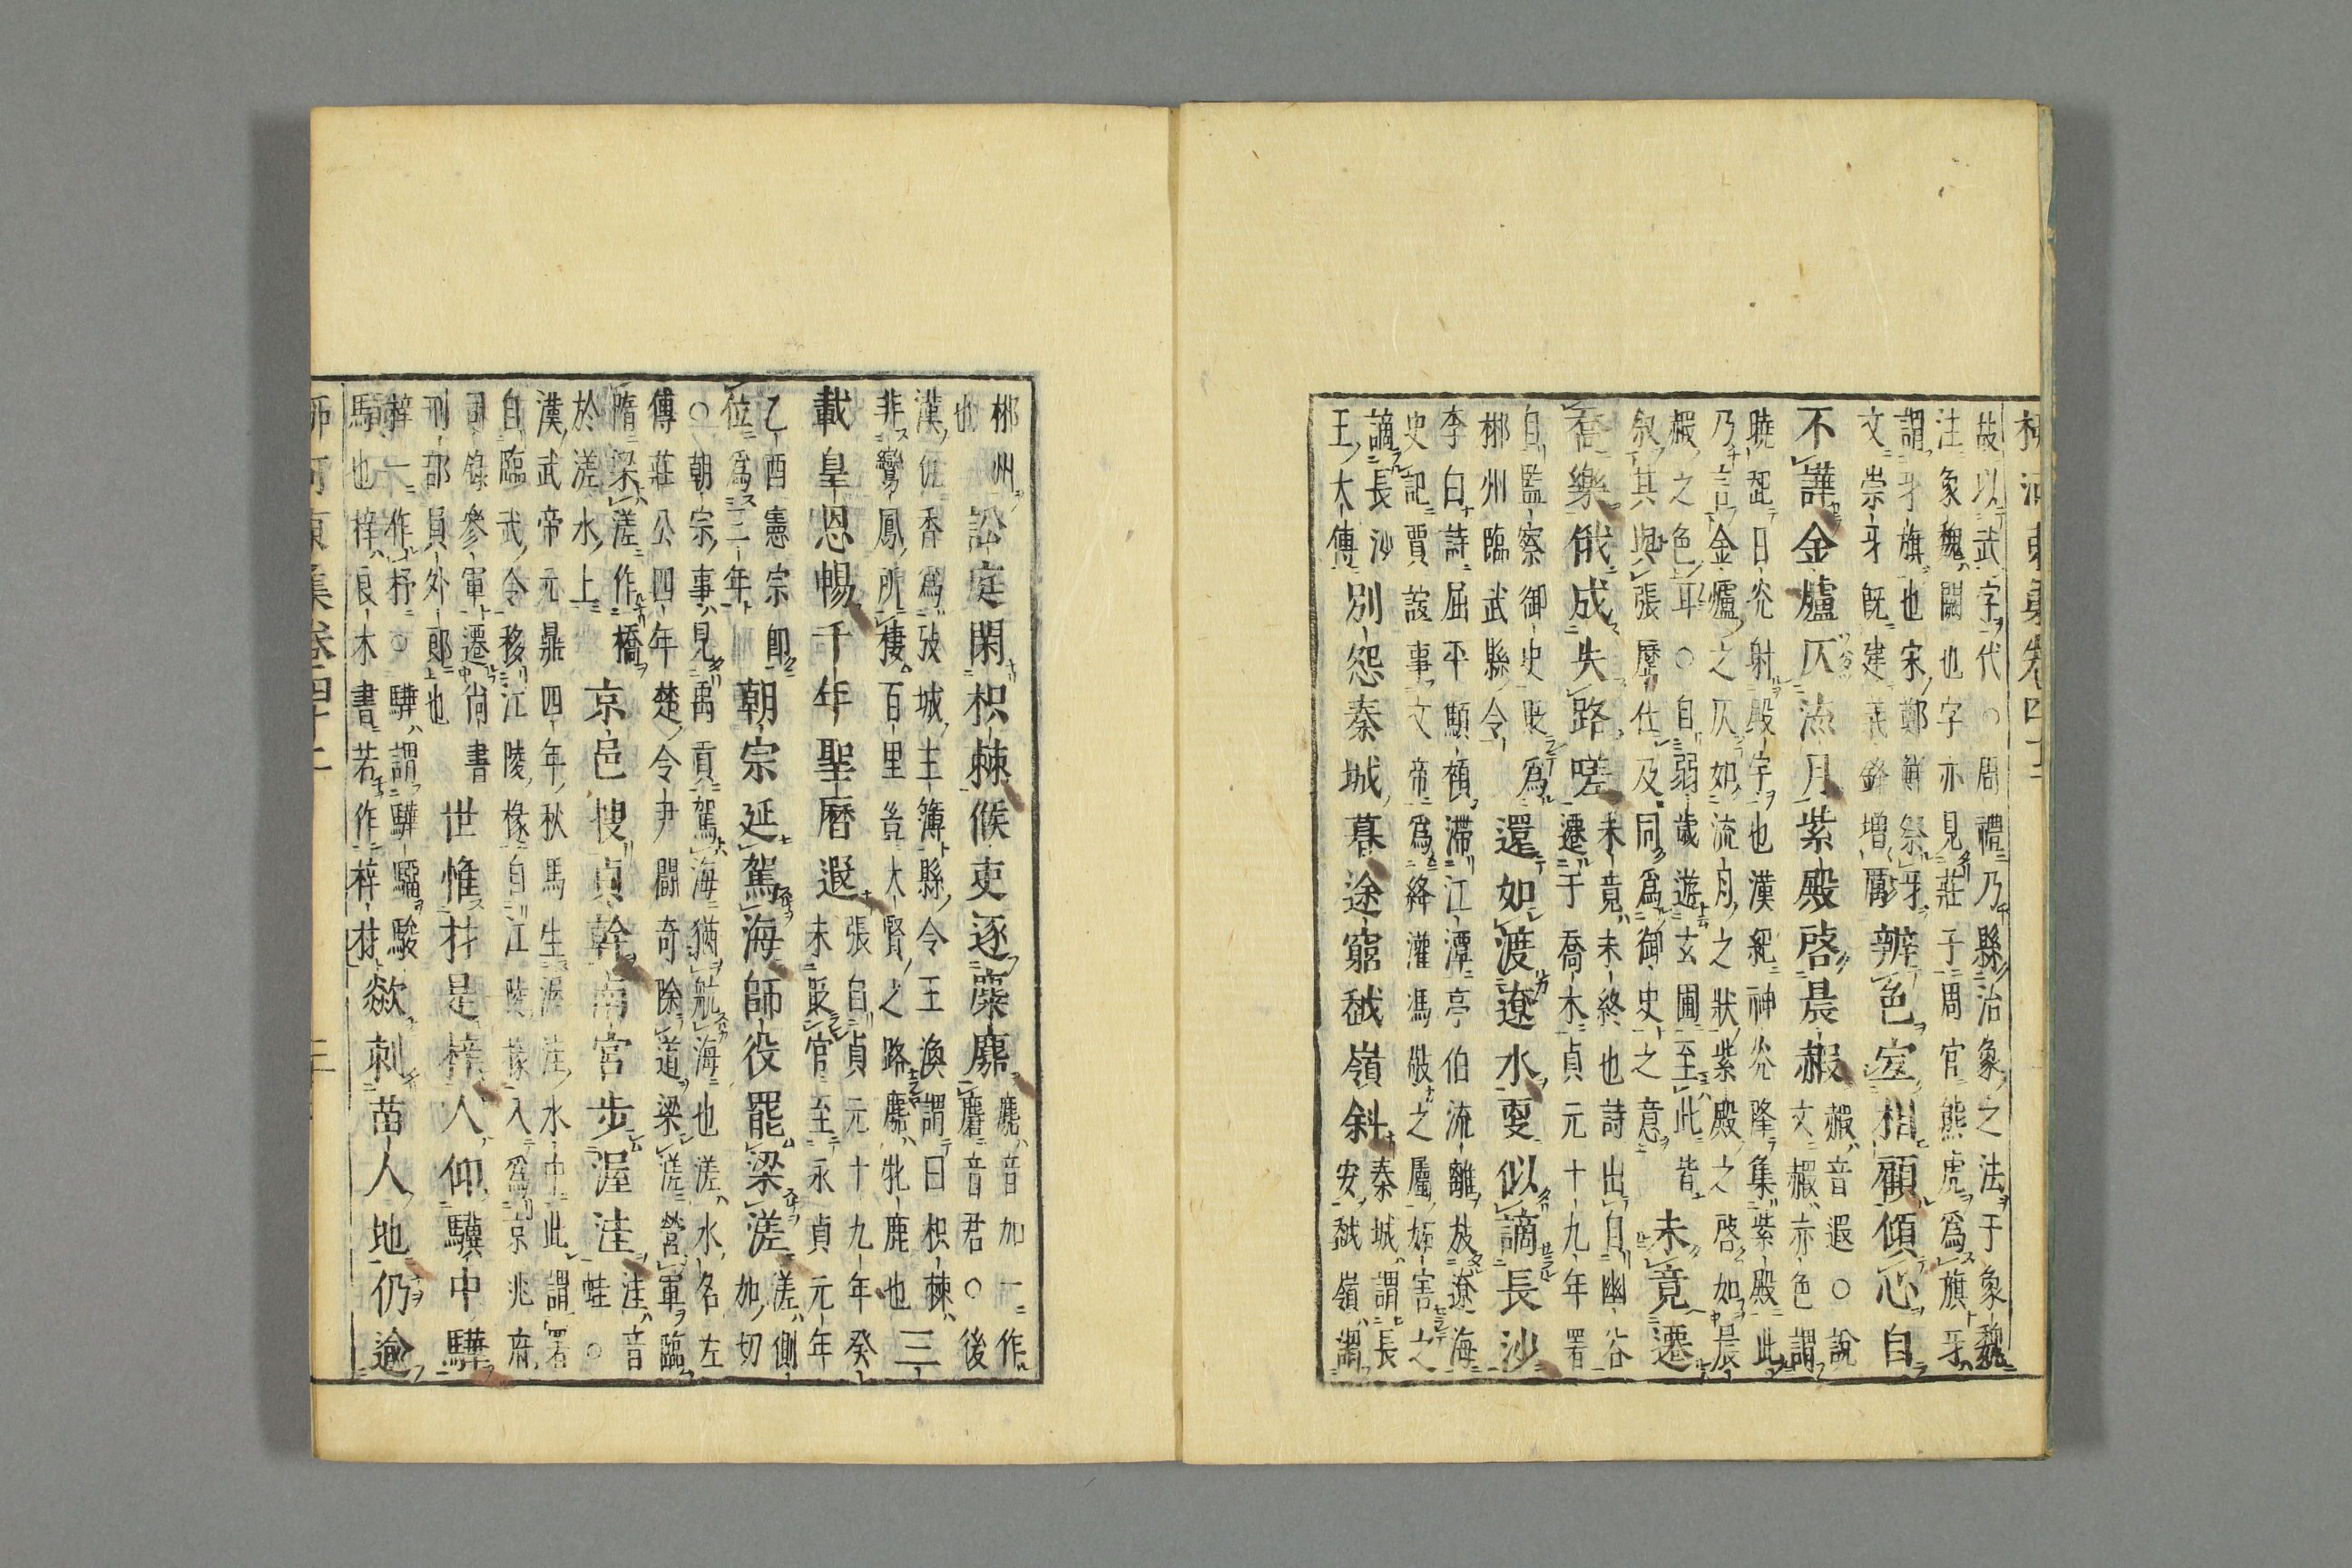 柳河東集卷四十二
故以武字代○周禮乃縣治象之法于象魏
注象魏闕也字亦見莊子周官熊虎爲旗牙
謂牙旗也宋鄭鮮祭牙
文崇牙旣建義鋒增厲
辨色宜相顧傾心自
不譁金爐仄流月紫殿啓晨赮
赮音遐○說
文赮赤色謂
曉起日光射殿宇也漢紀神光降集紫殿此
乃言金爐之仄如流月之狀紫殿之啓如晨
赮之色耳○自弱歲遊玄圃至此皆
叙其與張壓仕及同爲御史之意
未竟遷
喬樂俄成失路嗟
未竟未終也詩出自幽谷
遷于喬木貞元十九年署
自監察御史貶爲
郴州臨武縣令
還如渡遼水更似謫長沙
李白詩屈平顦顇滯江潭亭伯流離放遼海
史記賈誼事文帝爲絳灌馮敬之屬妬害之
謫長沙
王太傅
別怨秦城暮途窮越嶺斜
秦城謂長
安越嶺謂
郴州
也
訟庭閑枳棘候吏逐麋麚
麚音加一作
麏音君○後
漢仇香爲攷城主簿縣令王渙謂曰枳棘
非鸞鳳所棲百里豈大賢之路麚牝鹿也
三
載皇恩暢千年聖曆遐
張自貞元十九年癸
未貶官至永貞元年
乙酉憲宗卽
位爲三年
朝宗延駕海師役罷梁溠
溠側
加切
○朝宗事見禹貢駕海猶航海也溠水名左
傳莊公四年楚令尹鬬奇除道梁溠營軍臨
隋梁溠作橋
於溠水上
京邑搜貞幹南宮步渥洼
洼音
蛙○
漢武帝元鼎四年秋馬生渥洼水中此謂署
自臨武令移江陵掾自江陵掾入爲京兆府
司錄參軍遷尚書
刑部員外郎也
世惟材是梓人仰驥中驊
梓一作杼○驊謂驊騮駿
馬也梓良木書若作梓材
歘刺苗人地仍逾
柳河東集卷四十二